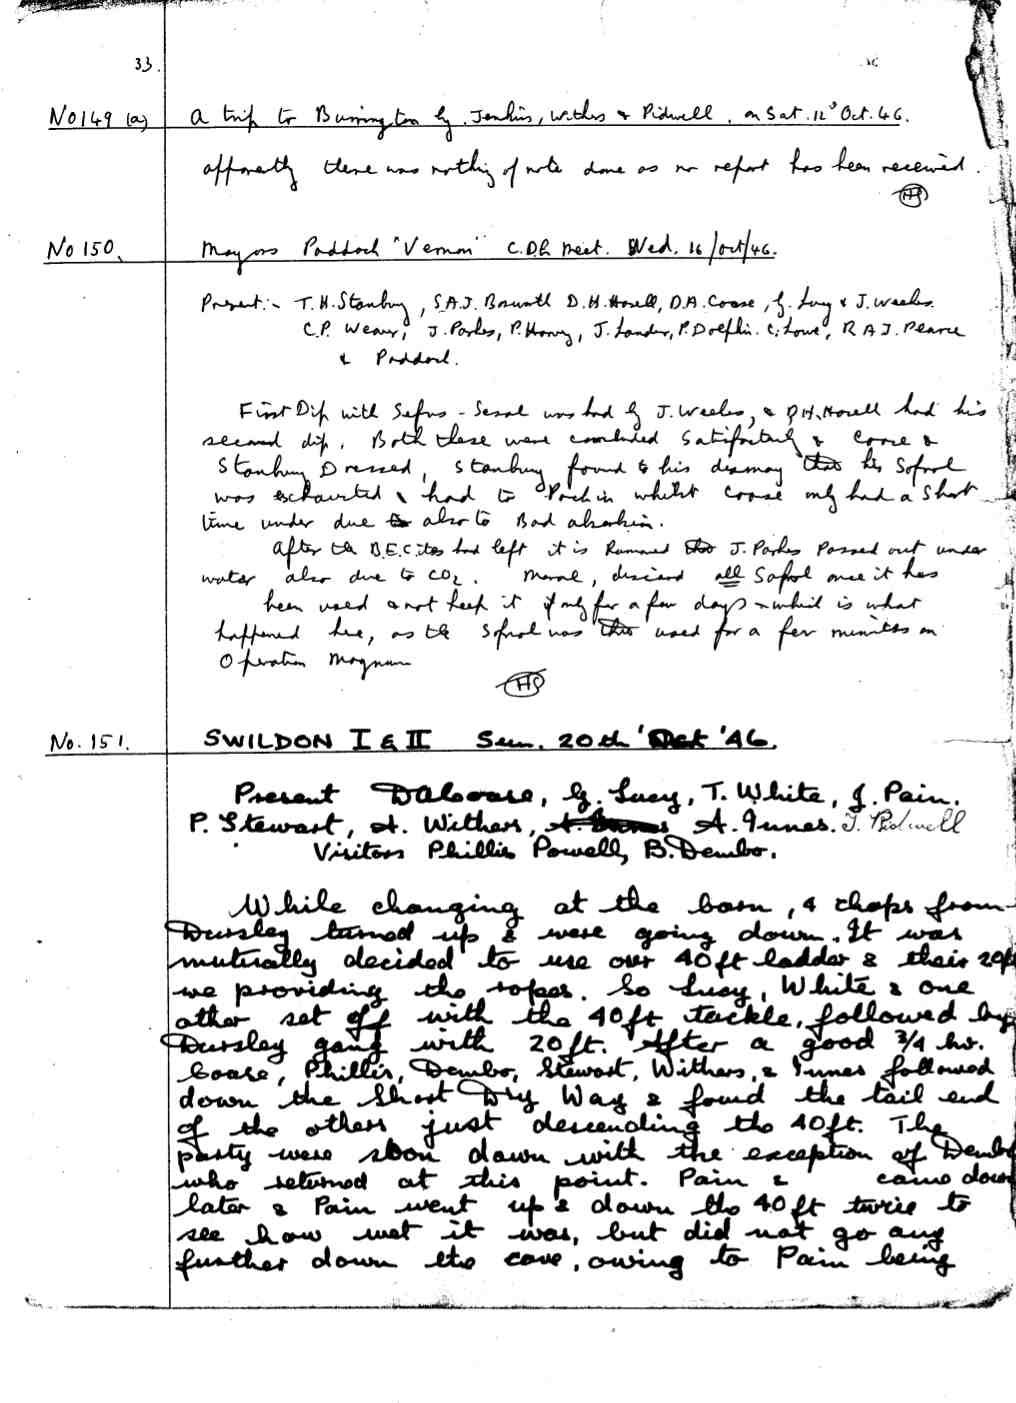 33.
No 149 (a) A trip to Burrington by Jenkins, Withers & Pidwell, on Sat. 12th Oct. 46.
apparently there was nothing of note done as no report has been received.
HS
No 150. Mayors Paddock "Vernon" C.D.G. meet. Wed. 16/Oct/46.
Present:- T.H. Stanbury, S.A.J. D.H. Hasell, D.A. Coase, G. Lucy & J. Weekes.
C.P. Weaver, J. Parkes, P. Harvey, J. Lander, P. Dolphin. C. Lowe, R A J. Pearce
& Paddock.
First Dip with was had by J. Weekes, & D.H. Hasell had his
second dip. Both these were concluded Satisfactorily & Coase &
Stanbury Dressed, Stanbury found to his dismay that his Sofnol
was exhausted & had to Pack in whilst Coase only had a Short
time under due to also to Bad absorbtion.
After the B.E.C.ites had left it is Rumoured tho J. Parkes Passed out under
water also due to CO2. Moral, discard all Sofnol once it has
been used & not keep it if only for a few days - which is what
happened here, as the Sofnol was used for a few minutes on
Operation Magnum
HS
No. 151. SWILDON I & II Sun. 20th 'Oct '46.
Present DACoase, G. Lucy, T. White, J. Pain.
P. Stewart, A. Withers, A. Innes. J. Pidwell
Visitors Phillis Powell, B. Dembo.
While changing at the barn, 4 chaps from
Dursley turned up & were going down. It was
mutually decided to use our 40ft ladder & their 20ft
we providing the ropes. So Lucy, White & one
other set off with the 40ft tackle, followed by
Dursley gang with 20ft. After a good 3/4 hr.
Coase, Phillis, Dembo, Stewart, Withers, & Innes followed
down the Short Dry Way & found the tail end
of the others just descending the 40ft. The
party were soon down with the exception of Dembo
who returned at this point. Pain & came down
later & Pain went up & down the 40ft twice to
see how wet it was, but did not go any
further down the cave, owing to Pain being